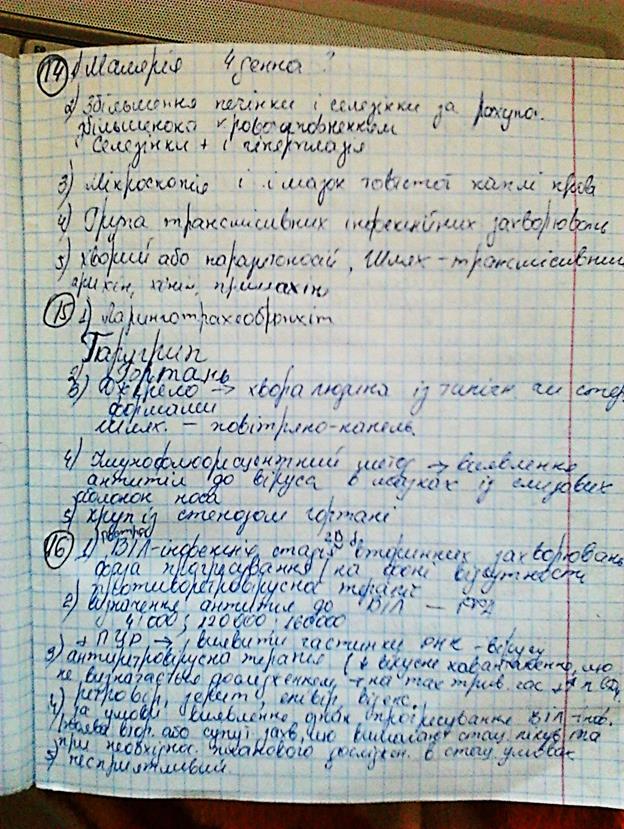 14 1) Малярія 4 денна ?
2) Збільшення печінки і селезінки за рахунок
збільшеного кровонаповненням
Селезінки + і гіперплазія
3) Мікроскопія і мазок товстої каплі крові
4) Група трансмісивних інфекційних захворювань
5) хворий або паразитоносій, Шлях - трансмісивний
хінін, примахін
15 1) Ларинготрахеобронхіт
Парагрип
2) Гортань
3) Джерело → хвора людина із типічн. чи стер.
формами
Шлях. – повітряно-капель.
4) Імунофлюоресцентний метод → виявлення
антитіл до віруса в мазках із слизових
оболонок носа
5) круп із стенозом гортані
16 1) ВІЛ-інфекція стадія вторинних захворювань
фаза прогресування / на фоні відсутности
противоретровірусна терапії
2) визначення антитил до ВІЛ –
41000; 120000; 160000
+ ПЦР → виявити частинки РНК - вірусу
3) антиретровірусна терапія (↓ вірусне навантаження, що
не визначається дослідженнем → на так трив. час +
ретровір, зеріт, епівір, відекс.
4) за умови виявлення ознак прогресування ВІЛ інф.
або супут захв, що вимагают стац. лікув та
при необхіднос. планового досліджен. в стац умовах
5) несприятливий.